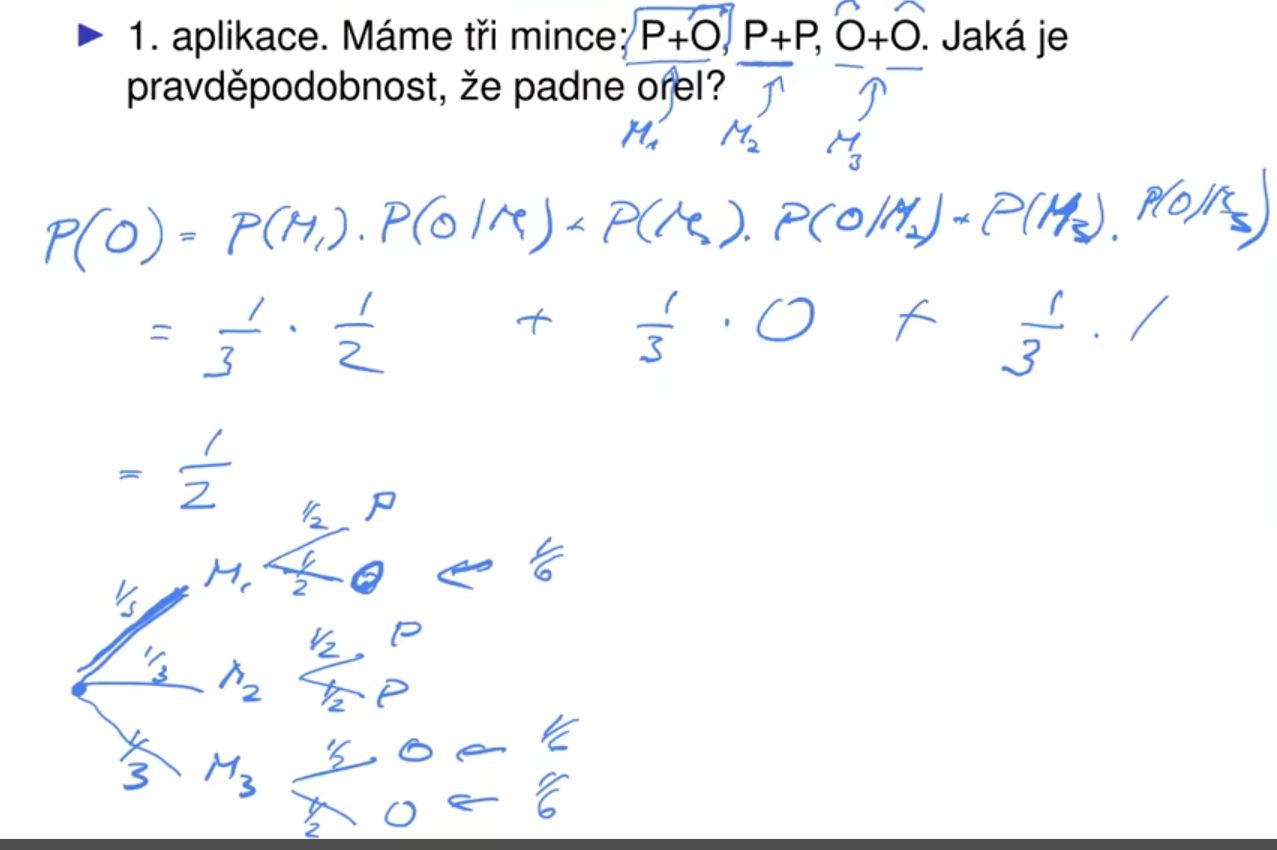 ▶ 1. aplikace. Máme tři mince: P+O, P+P, O+O. Jaká je
pravděpodobnost, že padne orel?
M₁ M₂ M₃
P(O) = P(M₁) . P(O/M₁) + P(M₂) . P(O/M₂) + P(M₃) . P(O/M₃)
= 1/3 · 1/2 + 1/3 · 0 + 1/3 · 1
= 1/2
1/2 P
1/3 M₁ 1/2 O ← 1/6
1/2 P
1/3 M₂ 1/2 P
1/3 M₃ 1/2 O ← 1/6
1/2 O ← 1/6